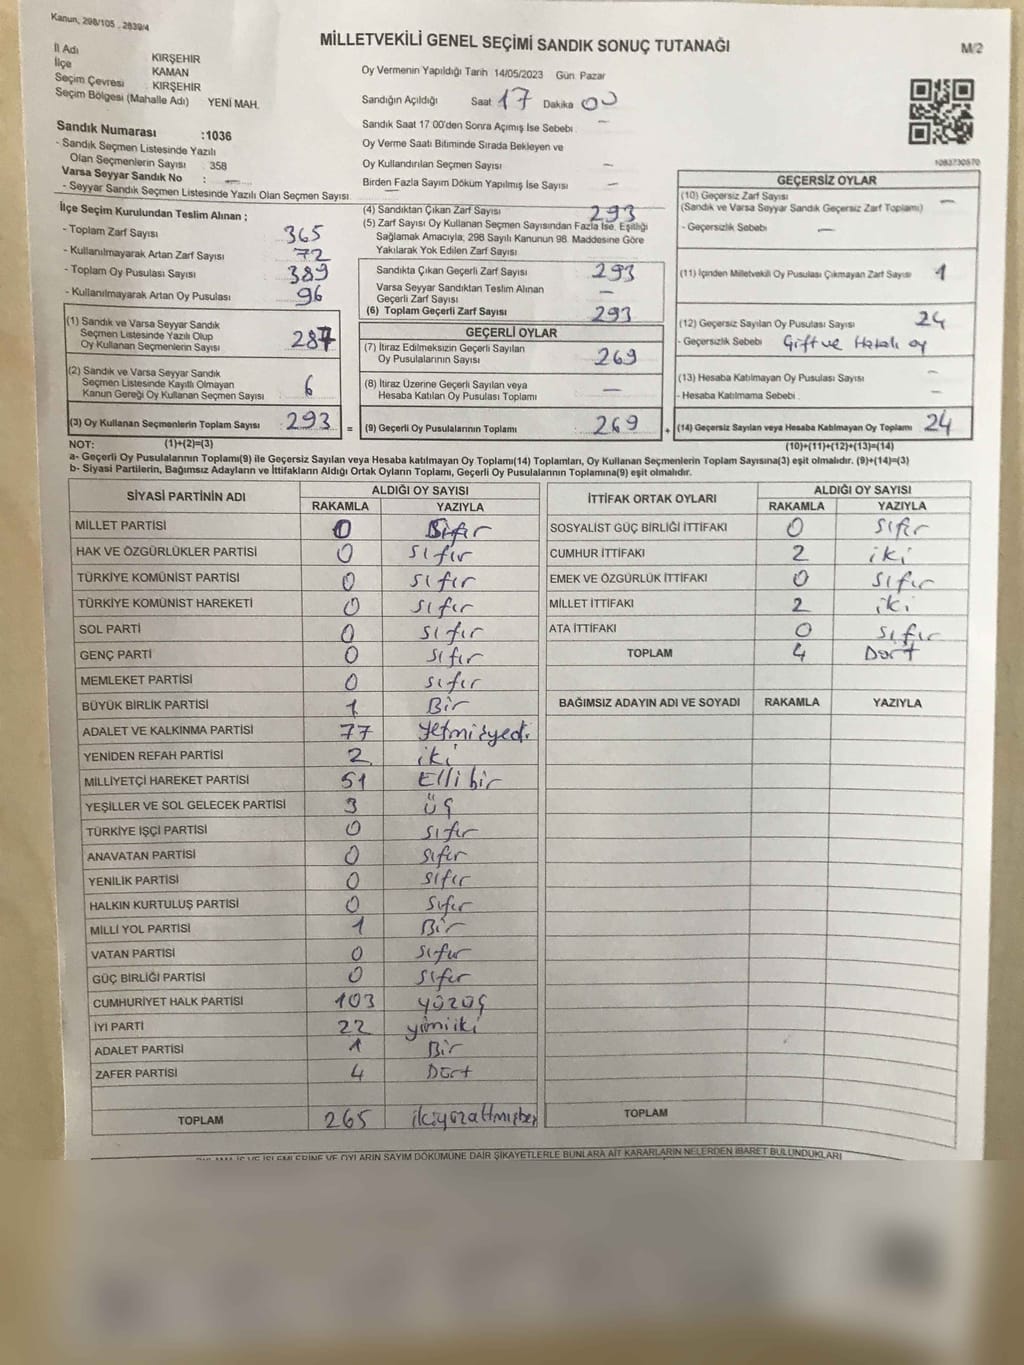 Kanun, 298/105 . 2839/4
MİLLETVEKİLİ GENEL SEÇİMİ SANDIK SONUÇ TUTANAĞI
M/2
İl Adı KIRŞEHİR
İlçe KAMAN
Seçim Çevresi KIRŞEHİR
Seçim Bölgesi (Mahalle Adı) YENİ MAH.
Oy Vermenin Yapıldığı Tarih 14/05/2023 Gün Pazar
Sandığın Açıldığı Saat 17 Dakika 00
Sandık Saat 17 00'den Sonra Açımış İse Sebebi –
Oy Verme Saati Bitiminde Sırada Bekleyen ve
Oy Kullandırılan Seçmen Sayısı –
Birden Fazla Sayım Döküm Yapılmış İse Sayısı –
1083730570
Sandık Numarası :1036
- Sandık Seçmen Listesinde Yazılı
Olan Seçmenlerin Sayısı 358
Varsa Seyyar Sandık No : –
- Seyyar Sandık Seçmen Listesinde Yazılı Olan Seçmen Sayısı
İlçe Seçim Kurulundan Teslim Alınan ;
- Toplam Zarf Sayısı 365
- Kullanılmayarak Artan Zarf Sayısı 72
- Toplam Oy Pusulası Sayısı 389
- Kullanılmayarak Artan Oy Pusulası 96
(1) Sandık ve Varsa Seyyar Sandık
Seçmen Listesinde Yazılı Olup
Oy Kullanan Seçmenlerin Sayısı 287
(2) Sandık ve Varsa Seyyar Sandık
Seçmen Listesinde Kayıtlı Olmayan
Kanun Gereği Oy Kullanan Seçmen Sayısı 6
(3) Oy Kullanan Seçmenlerin Toplam Sayısı 293 =
(4) Sandıktan Çıkan Zarf Sayısı 293
(5) Zarf Sayısı Oy Kullanan Seçmen Sayısından Fazla İse, Eşitliği
Sağlamak Amacıyla, 298 Sayılı Kanunun 98. Maddesine Göre
Yakılarak Yok Edilen Zarf Sayısı
Sandıkta Çıkan Geçerli Zarf Sayısı 293
Varsa Seyyar Sandıktan Teslim Alınan
Geçerli Zarf Sayısı –
(6) Toplam Geçerli Zarf Sayısı 293
GEÇERLİ OYLAR
(7) İtiraz Edilmeksizin Geçerli Sayılan
Oy Pusulalarının Sayısı 269
(8) İtiraz Üzerine Geçerli Sayılan veya
Hesaba Katılan Oy Pusulası Toplamı –
(9) Geçerli Oy Pusulalarının Toplamı 269 +
GEÇERSİZ OYLAR
(10) Geçersiz Zarf Sayısı –
(Sandık ve Varsa Seyyar Sandık Geçersiz Zarf Toplamı)
- Geçersizlik Sebebi –
(11) İçinden Milletvekili Oy Pusulası Çıkmayan Zarf Sayısı 1
(12) Geçersiz Sayılan Oy Pusulası Sayısı 24
- Geçersizlik Sebebi Çift ve Hatalı oy
(13) Hesaba Katılmayan Oy Pusulası Sayısı –
- Hesaba Katılmama Sebebi –
(14) Geçersiz Sayılan veya Hesaba Katılmayan Oy Toplamı 24
NOT: (1)+(2)=(3) (10)+(11)+(12)+(13)=(14)
a- Geçerli Oy Pusulalarının Toplamı(9) ile Geçersiz Sayılan veya Hesaba katılmayan Oy Toplamı(14) Toplamları, Oy Kullanan Seçmenlerin Toplam Sayısına(3) eşit olmalıdır. (9)+(14)=(3)
b- Siyasi Partilerin, Bağımsız Adayların ve İttifakların Aldığı Ortak Oyların Toplamı, Geçerli Oy Pusulalarının Toplamına(9) eşit olmalıdır.
SİYASİ PARTİNİN ADI ALDIĞI OY SAYISI
RAKAMLA YAZIYLA
MİLLET PARTİSİ 0 Sıfır
HAK VE ÖZGÜRLÜKLER PARTİSİ 0 sıfır
TÜRKİYE KOMÜNİST PARTİSİ 0 sıfır
TÜRKİYE KOMÜNİST HAREKETİ 0 sıfır
SOL PARTİ 0 sıfır
GENÇ PARTİ 0 sıfır
MEMLEKET PARTİSİ 0 sıfır
BÜYÜK BİRLİK PARTİSİ 1 Bir
ADALET VE KALKINMA PARTİSİ 77 Yetmişyedi
YENİDEN REFAH PARTİSİ 2 iki
MİLLİYETÇİ HAREKET PARTİSİ 51 Elli bir
YEŞİLLER VE SOL GELECEK PARTİSİ 3 üç
TÜRKİYE İŞÇİ PARTİSİ 0 sıfır
ANAVATAN PARTİSİ 0 sıfır
YENİLİK PARTİSİ 0 sıfır
HALKIN KURTULUŞ PARTİSİ 0 sıfır
MİLLİ YOL PARTİSİ 1 Bir
VATAN PARTİSİ 0 sıfır
GÜÇ BİRLİĞİ PARTİSİ 0 sıfır
CUMHURİYET HALK PARTİSİ 103 yüzüç
İYİ PARTİ 22 yirmiiki
ADALET PARTİSİ 1 Bir
ZAFER PARTİSİ 4 Dört
TOPLAM 265 ikiyüzaltmışbeş
İTTİFAK ORTAK OYLARI ALDIĞI OY SAYISI
RAKAMLA YAZIYLA
SOSYALİST GÜÇ BİRLİĞİ İTTİFAKI 0 sıfır
CUMHUR İTTİFAKI 2 iki
EMEK VE ÖZGÜRLÜK İTTİFAKI 0 sıfır
MİLLET İTTİFAKI 2 iki
ATA İTTİFAKI 0 sıfır
TOPLAM 4 Dört
BAĞIMSIZ ADAYIN ADI VE SOYADI RAKAMLA YAZIYLA
TOPLAM
OYLARIN SAYIM DÖKÜMÜNE DAİR ŞİKAYETLERLE BUNLARA AİT KARARLARIN NELERDEN İBARET BULUNDUKLARI